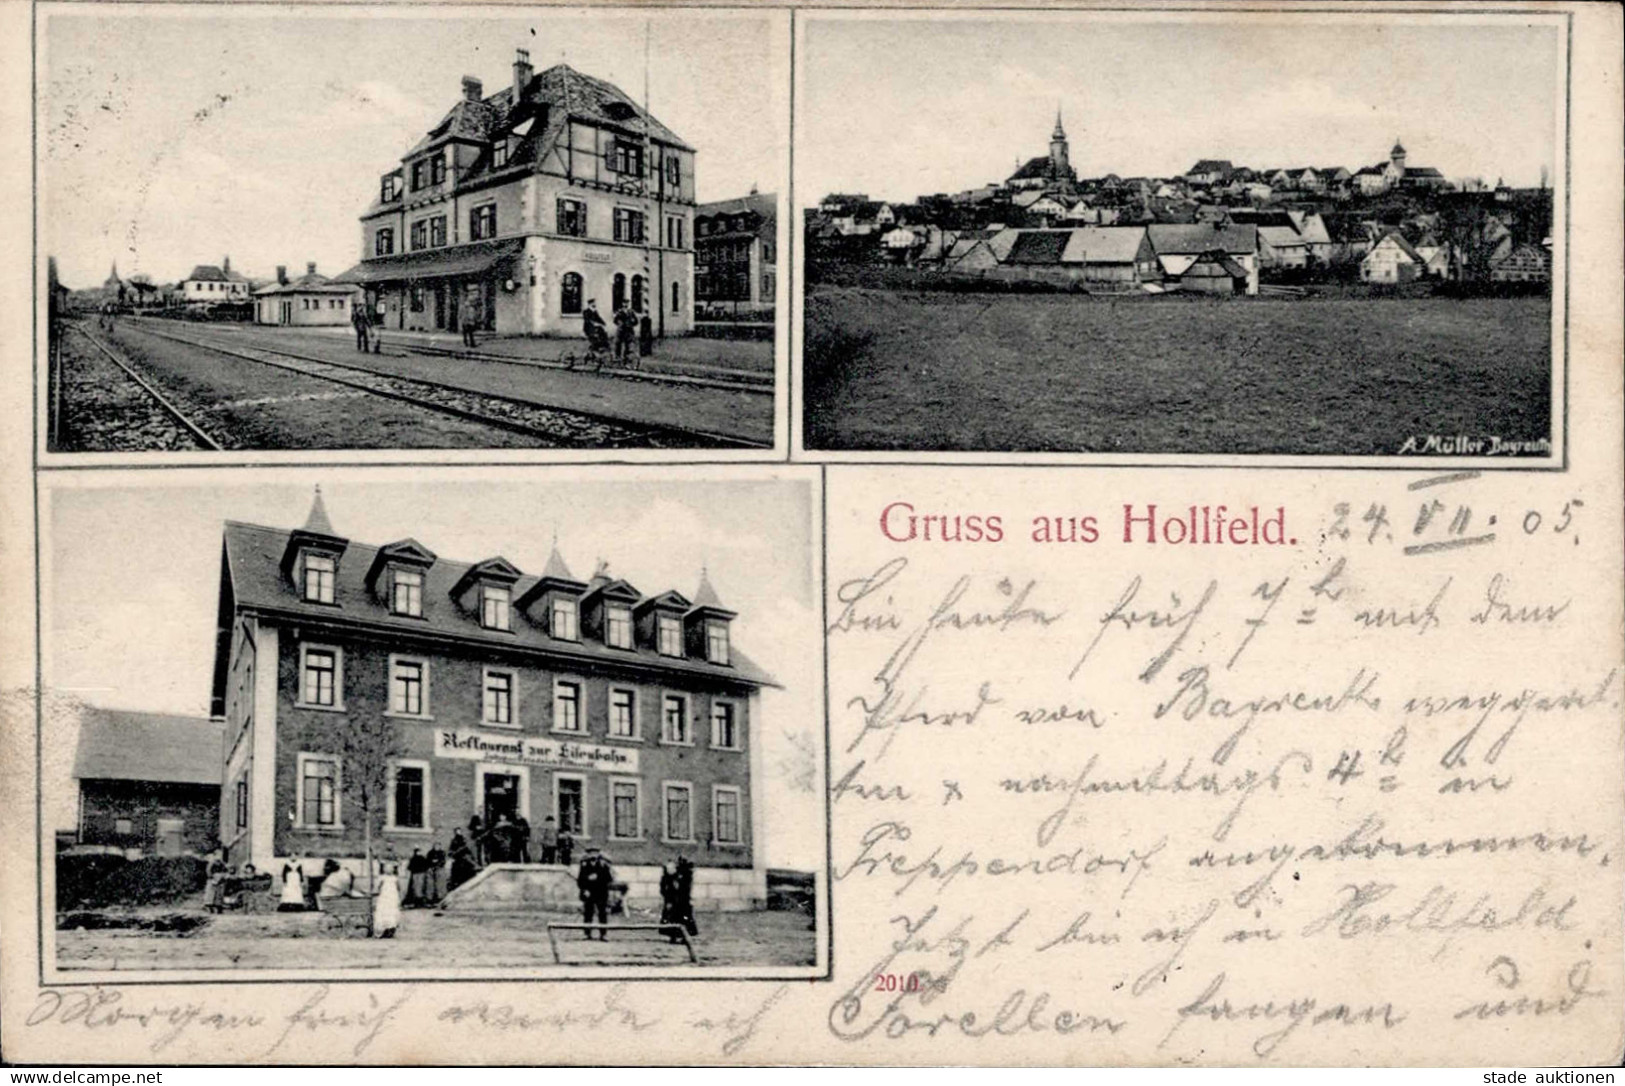 HOLLFELD
A. Müller Bayreuth
Gruss aus Hollfeld. 24. VII. 05.
Restaurant zur Eisenbahn.
Bin heute früh 7 h mit dem
Pferd von Bayreuth weggerit-
ten & nachmittags 4 h in
Treppendorf angekommen.
Jetzt bin ich in Hollfeld
2010.
Forellen fangen und
Morgen früh werde ich
delcampe.net
stade auktionen